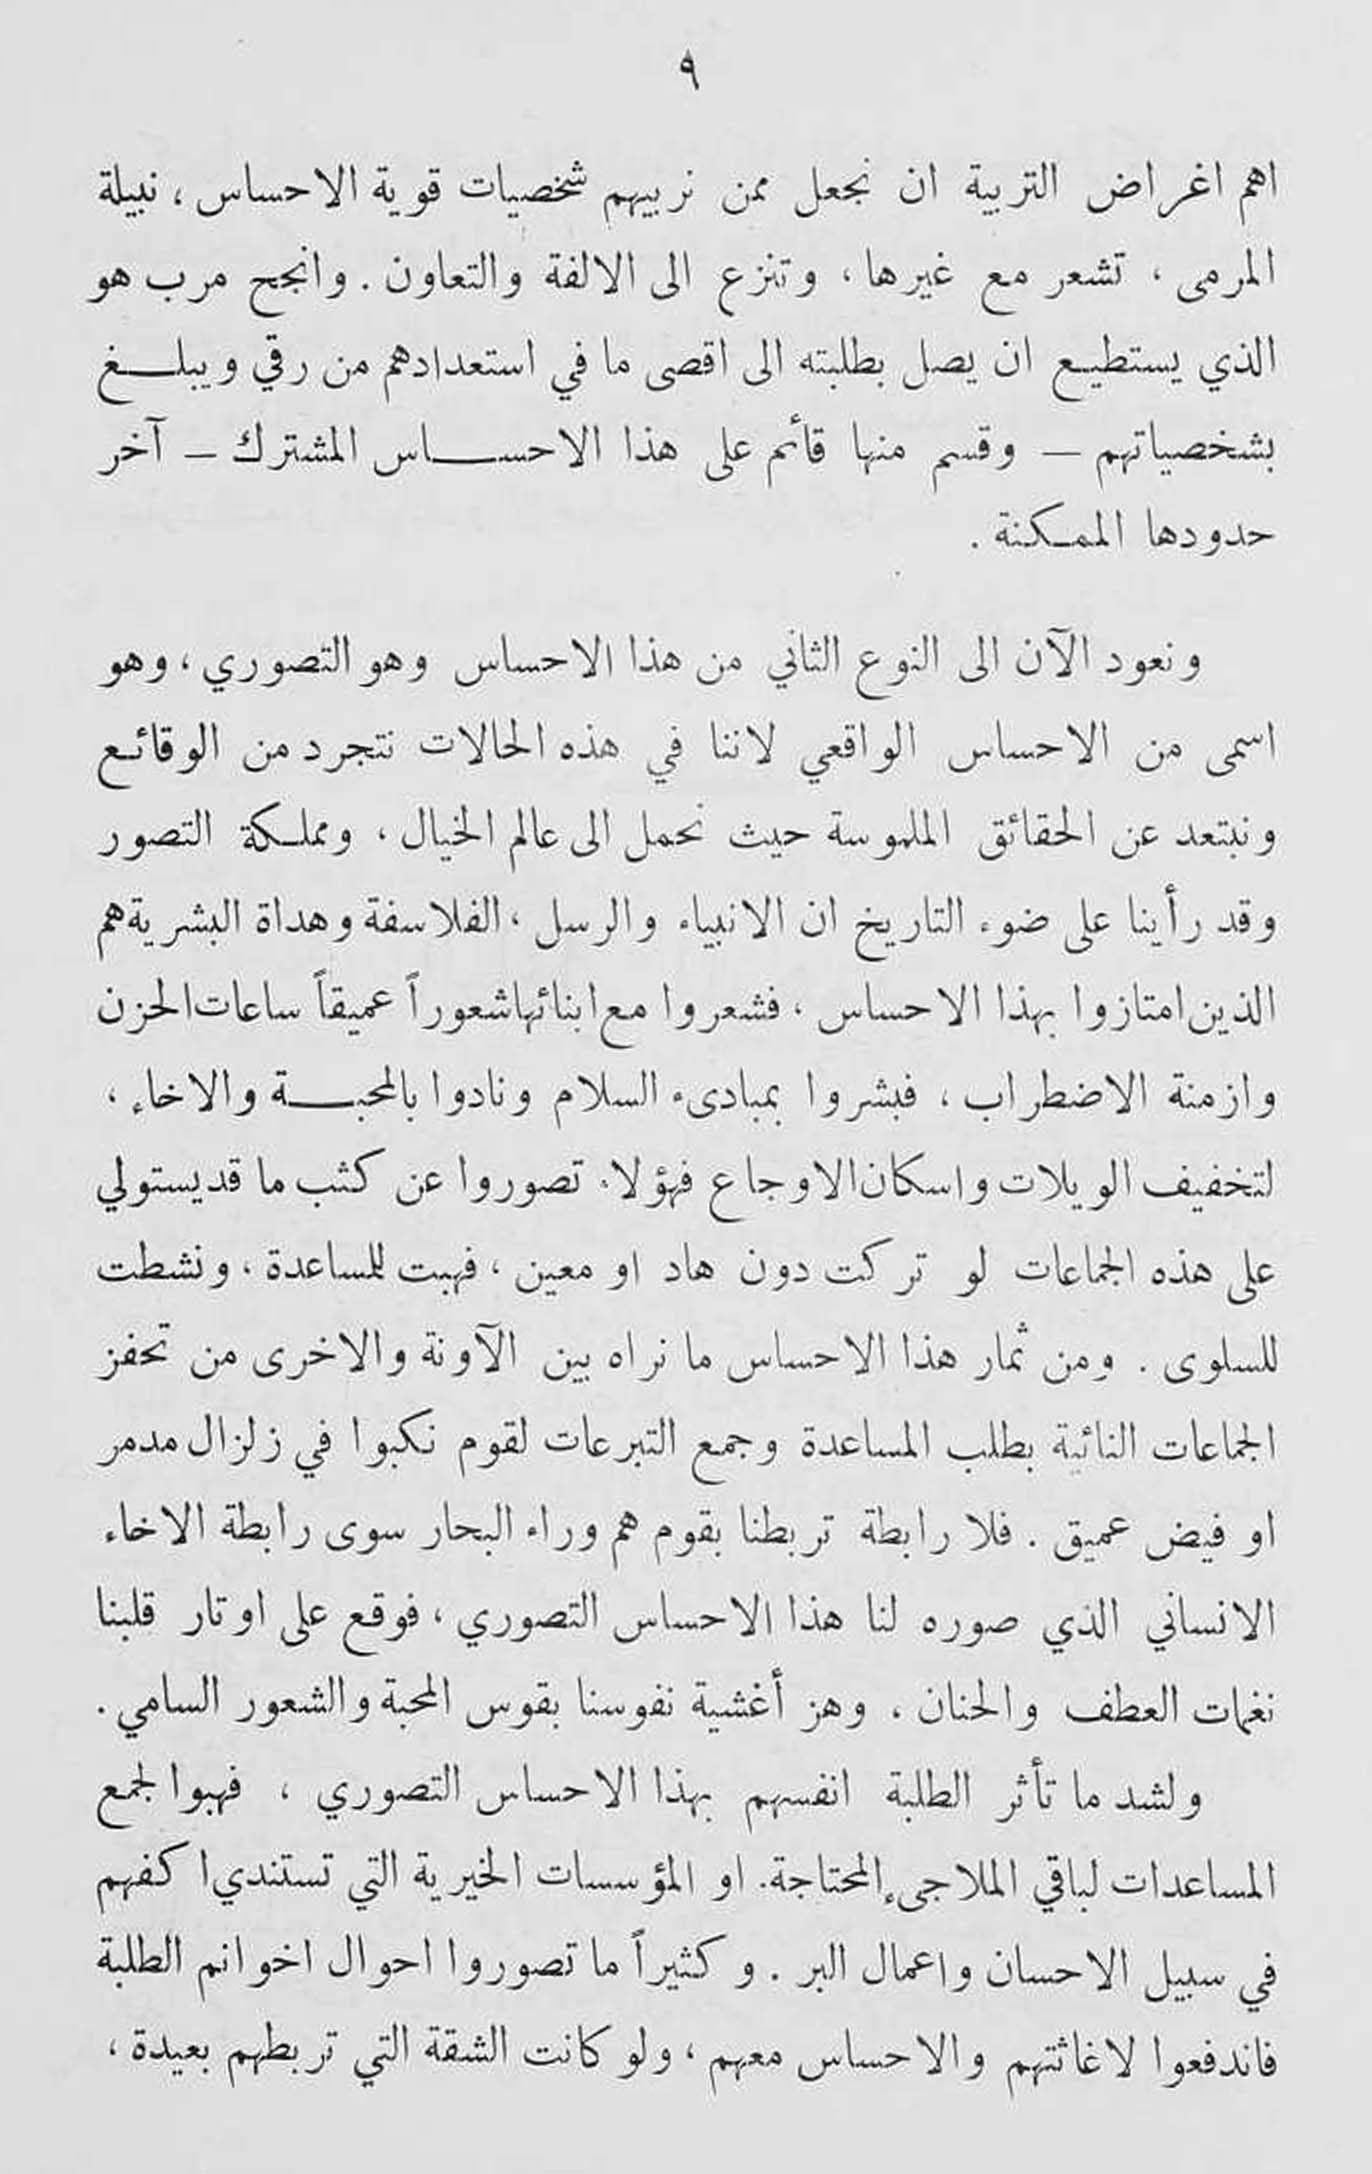 ٩
اهم اغراض التربية ان نجعل ممن نربيهم شخصيات قوية الاحساس ، نبيلة
المرمى ، تشعر مع غيرها ، وتنزع الى الالفة والتعاون . وانجح مرب هو
الذي يستطيع ان يصل بطلبته الى اقصى ما في استعدادهم من رقي ويبلغ
بشخصياتهم – وقسم منها قائم على هذا الاحساس المشترك – آخر
حدودها الممكنة .
ونعود الآن الى النوع الثاني من هذا الاحساس وهو التصوري ، وهو
اسمى من الاحساس الواقعي لاننا في هذه الحالات نتجرد من الوقائع
ونبتعد عن الحقائق الملموسة حيث نحمل الى عالم الخيال ، ومملكة التصور
وقد رأينا على ضوء التاريخ ان الانبياء والرسل ، الفلاسفة وهداة البشرية هم
الذين امتازوا بهذا الاحساس ، فشعروا مع ابنائها شعوراً عميقاً ساعات الحزن
وازمنة الاضطراب ، فبشروا بمبادىء السلام ونادوا بالمحبة والاخاء ،
لتخفيف الويلات واسكان الاوجاع فهؤلاء تصوروا عن كثب ما قد يستولي
على هذه الجماعات لو تركت دون هاد او معين ، فهبت للمساعدة ، ونشطت
للسلوى . ومن ثمار هذا الاحساس ما نراه بين الآونة والاخرى من تحفز
الجماعات النائية بطلب المساعدة وجمع التبرعات لقوم نكبوا في زلزال مدمر
او فيض عميق . فلا رابطة تربطنا بقوم هم وراء البحار سوى رابطة الاخاء
الانساني الذي صوره لنا هذا الاحساس التصوري ، فوقع على اوتار قلبنا
نغمات العطف والحنان ، وهز أغشية نفوسنا بقوس المحبة والشعور السامي .
ولشد ما تأثر الطلبة انفسهم بهذا الاحساس التصوري ، فهبوا لجمع
المساعدات لباقي الملاجىء المحتاجة. او المؤسسات الخيرية التي تستندي اكفهم
في سبيل الاحسان واعمال البر . وكثيراً ما تصوروا احوال اخوانم الطلبة
فاندفعوا لاغاثتهم والاحساس معهم ، ولو كانت الشقة التي تربطهم بعيدة ،